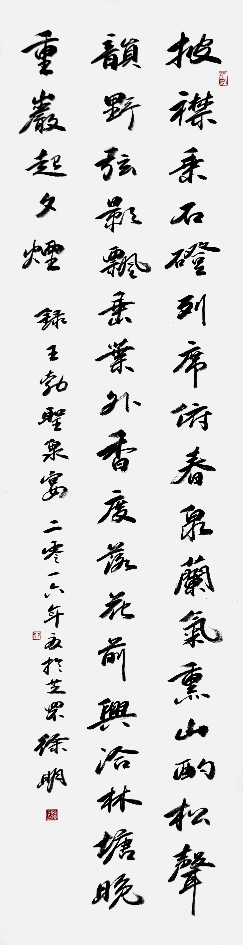 披襟乘石磴列席俯春泉蘭氣熏山酌松聲
韻野弦影飄垂葉外香度落花前興洽林塘晚
重巖起夕煙 錄王勃聖泉宴 二零一六年夏於芝罘徐明